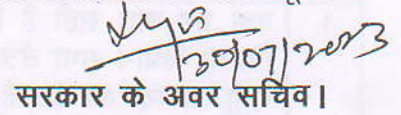 30/07/2023
सरकार के अवर सचिव।